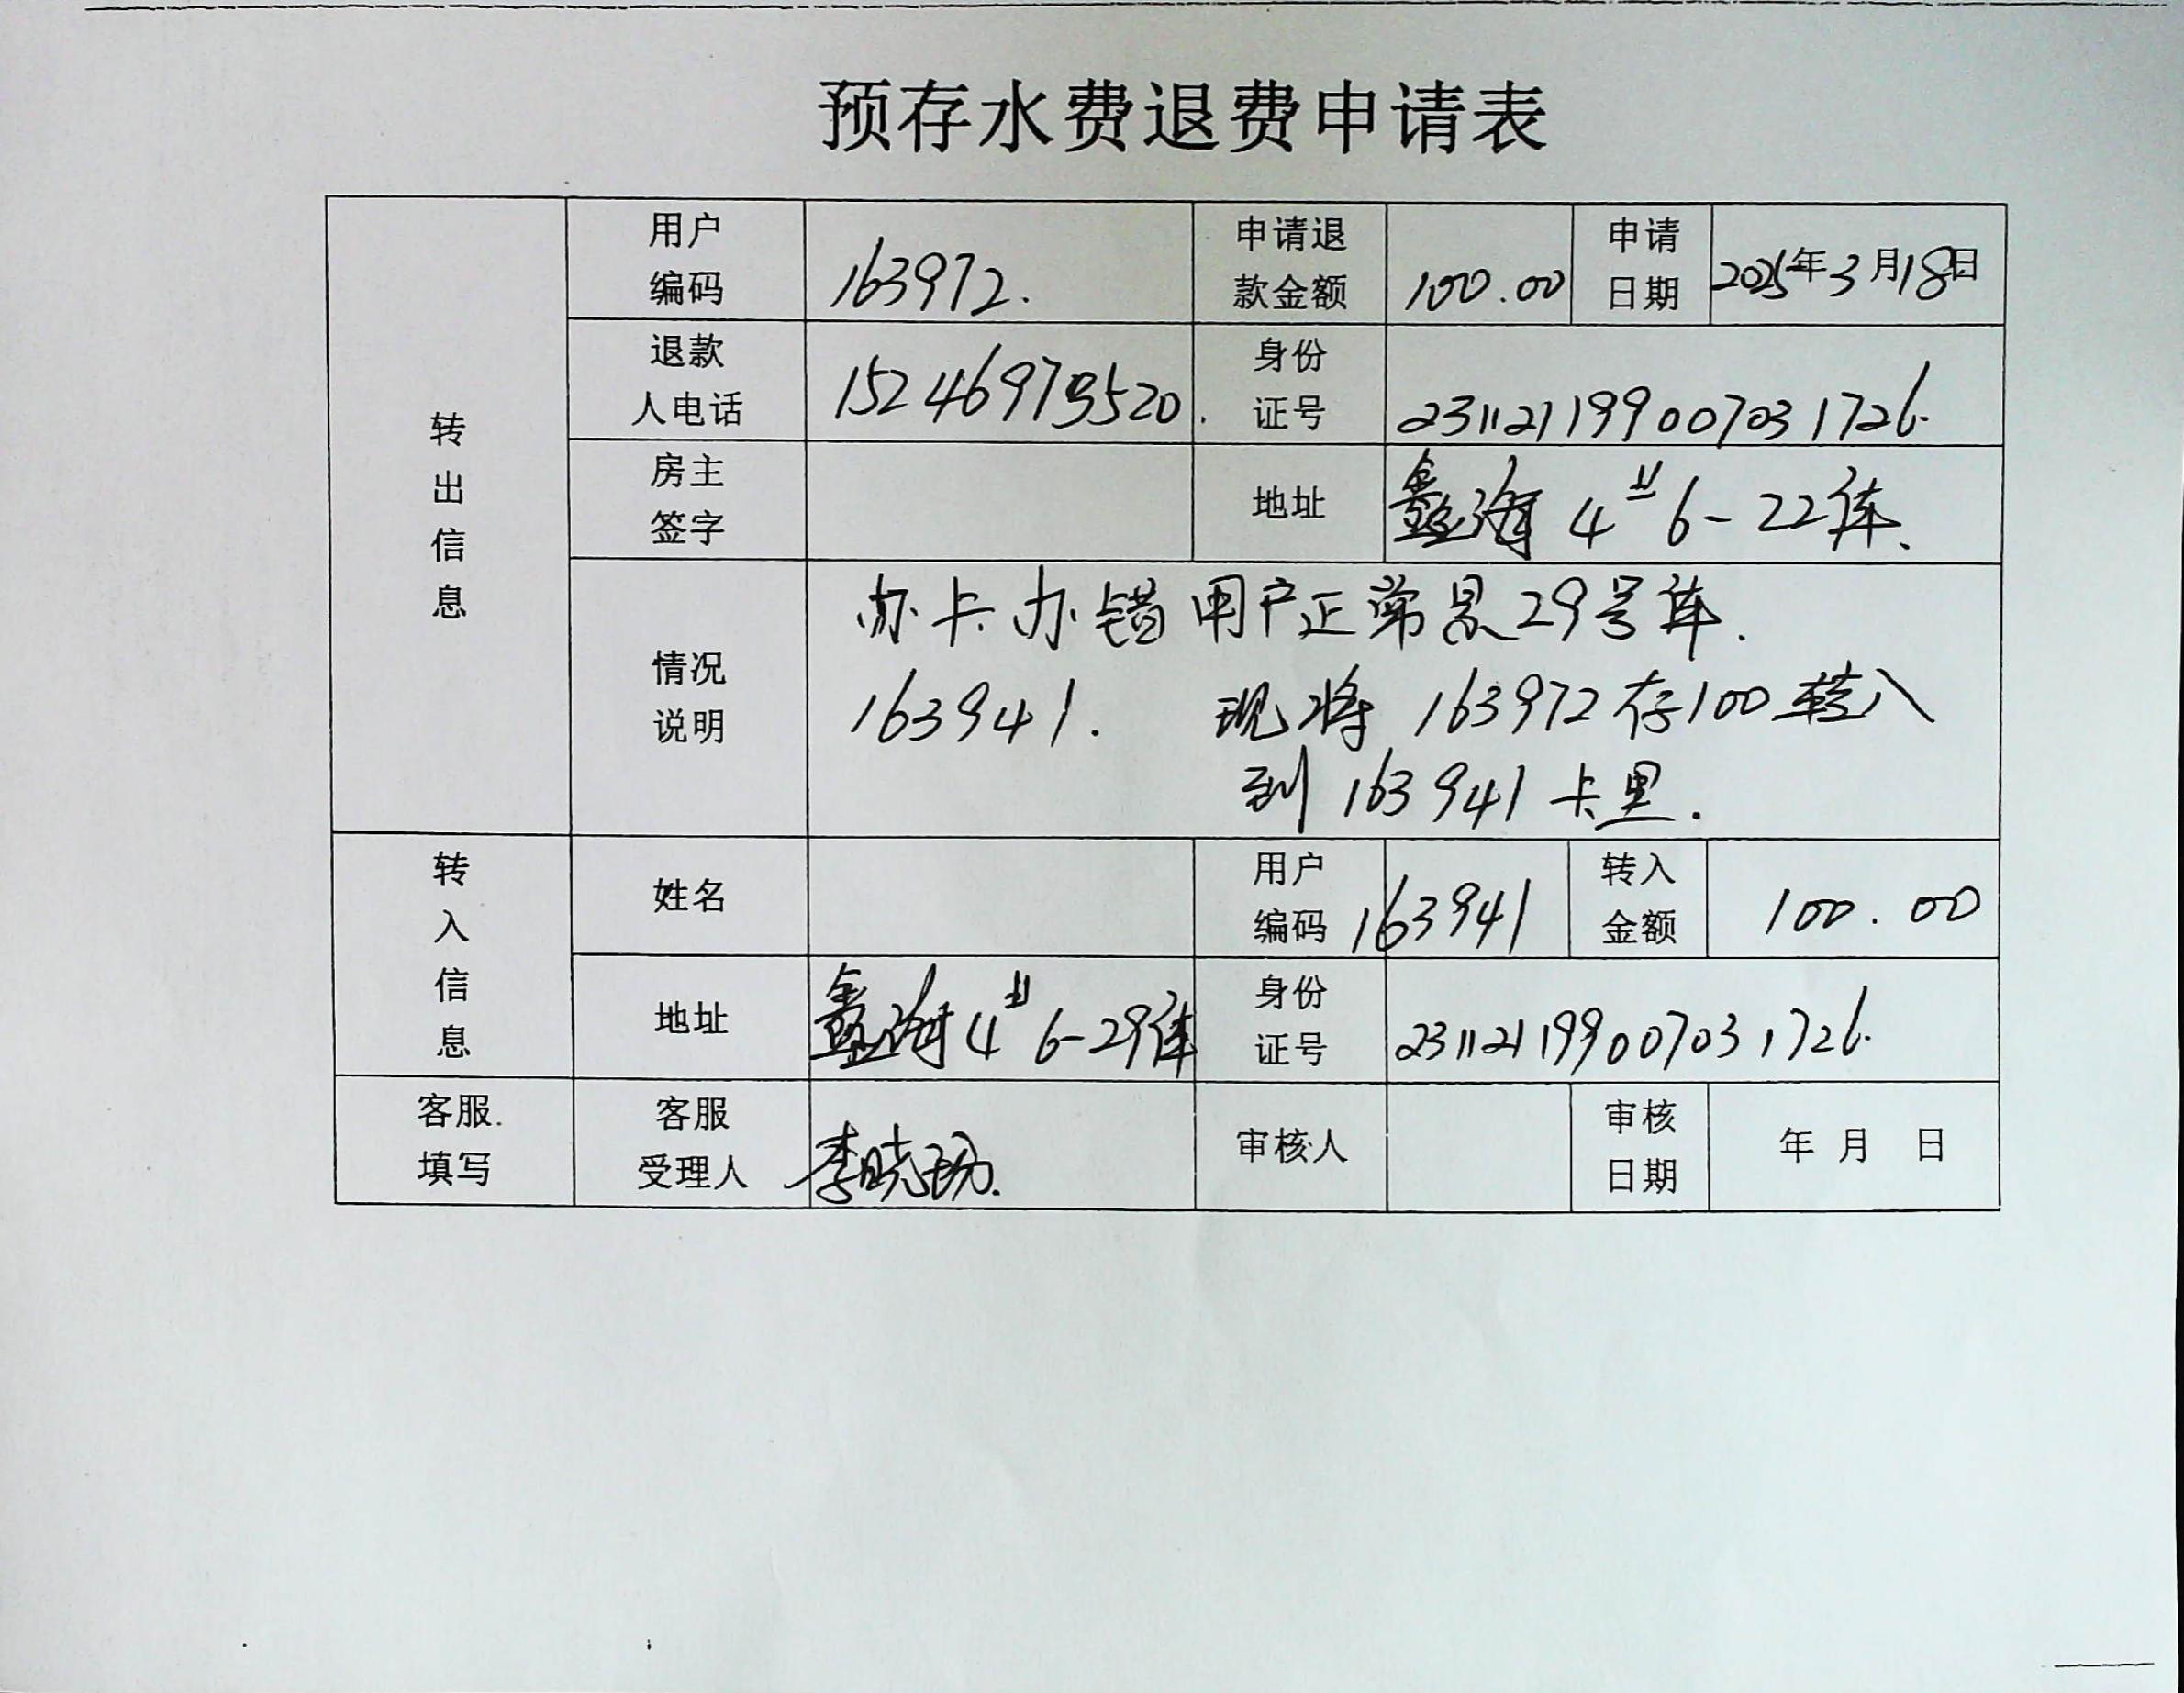 预存水费退费申请表
转出信息
用户编码 163972. 申请退款金额 100.00 申请日期 2025年3月18日
退款人电话 15246973520. 身份证号 231121199007031726.
房主签字 地址 鑫海4#6-22库、
情况说明 办卡办错用户正常是29号库.
163941. 现将163972存100转入
到163941卡里.
转入信息
姓名 用户编码 163941 转入金额 100.00
地址 鑫海4#6-29库 身份证号 231121199007031726.
客服.填写 客服受理人 李晓 审核人 审核日期 年 月 日